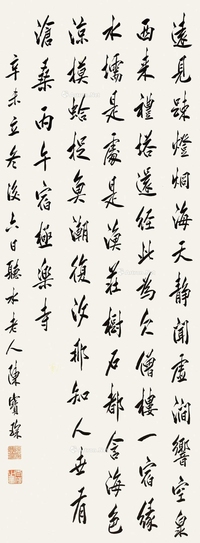 遠見疎燈烱海天靜聞虛澗響空泉
西來禮塔還經此為欠僧樓一宿緣
水檽是處是漢莊樹石都含海色
涼模蛤捉魚潮復汐那知人世有
滄桑丙午宿極樂寺
辛未立冬後六日聽水老人陳寶琛